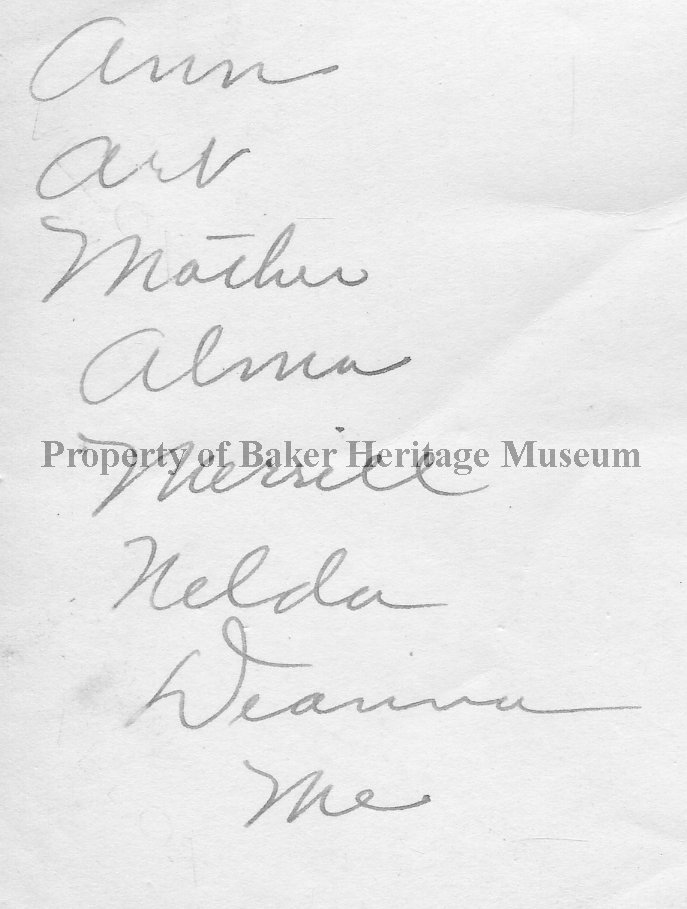 Ann
Art
Mother
Alma
Property of Baker Heritage Museum
Merrill
Nelda
Deanna
Me